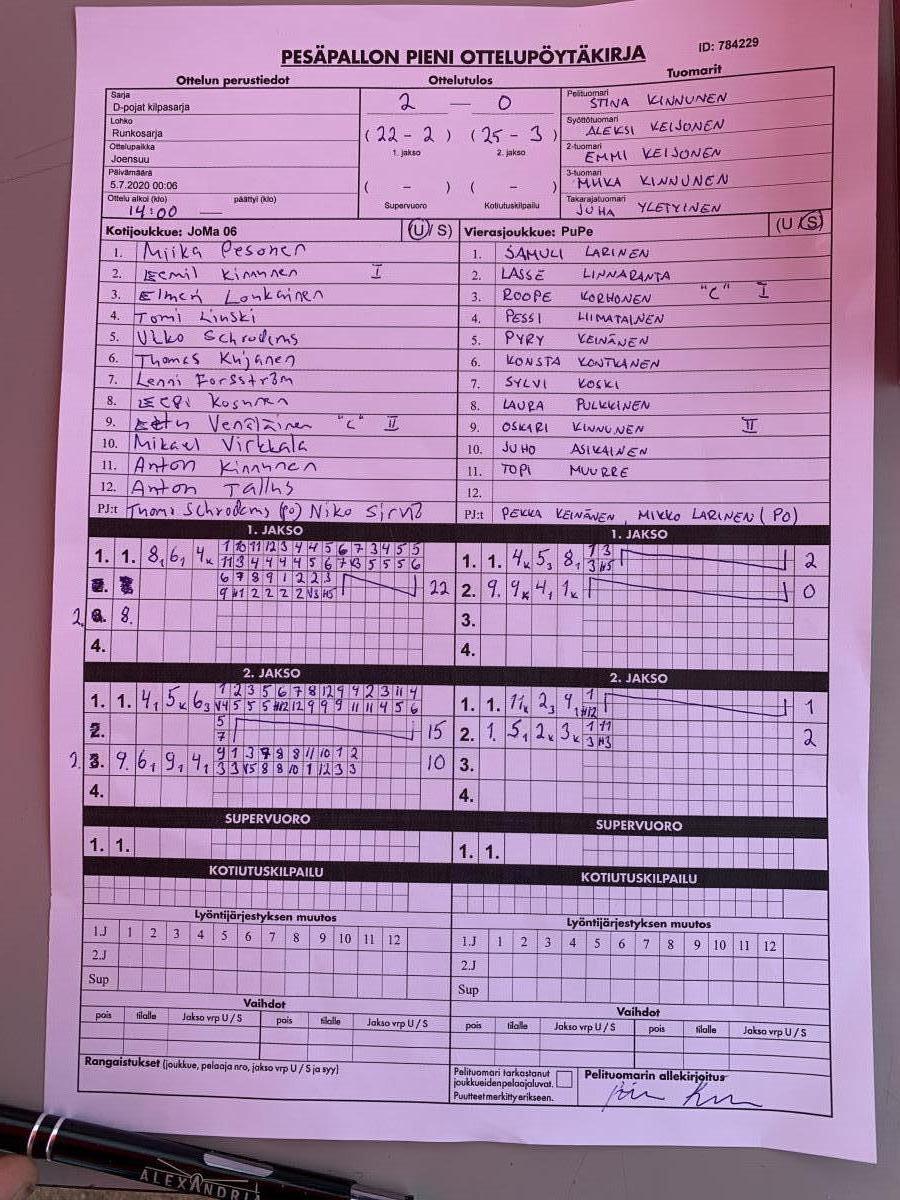 PESÄPALLON PIENI OTTELUPÖYTÄKIRJA
ID: 784229
Ottelun perustiedot
Sarja
D-pojat kilpasarja
Lohko
Runkosarja
Ottelupaikka
Joensuu
Päivämäärä
5.7.2020 00:06
Ottelu alkoi (klo) päättyi (klo)
14:00 —
Ottelutulos
2 — 0
(22 - 2) (25 - 3)
1. jakso 2. jakso
( - ) ( - )
Supervuoro Kotiutuskilpailu
Tuomarit
Pelituomari
STINA KINNUNEN
Syöttötuomari
ALEKSI KEIJONEN
2-tuomari
EMMI KEIJONEN
3-tuomari
MIIKA KINNUNEN
Takarajatuomari
JUHA YLETYINEN
Kotijoukkue: JoMa 06 (U/ S)
1. Miika Pesonen
2. Eemil Kinnunen I
3. Elmeri Loukainen
4. Tomi Linski
5. Ukko Schroderus
6. Thomas Kujanen
7. Lenni Forsström
8. Kosunen
9. Eetu Venäläinen "C" II
10. Mikael Virkkala
11. Anton Kinnunen
12. Anton Tallus
PJ:t Schroderus (PO) Niko Sirviö
Vierasjoukkue: PuPe (U / S)
1. SAMULI LARINEN
2. LASSE LINNARANTA
3. ROOPE KORHONEN "C" I
4. PESSI LIIMATAINEN
5. PYRY KEINÄNEN
6. KONSTA KONTKANEN
7. SYLVI KOSKI
8. LAURA PULKKINEN
9. OSKARI KINNUNEN II
10. JUHO ASIKAINEN
11. TOPI MUURRE
12.
PJ:t PEKKA KEINÄNEN, MIKKO LARINEN (PO)
1. JAKSO
1. 1. 8, 6, 4k 1 10 11 12 3 4 4 5 6 7 3 4 5 5
11 3 4 4 4 4 5 6 7 V3 5 5 5 6
6 7 8 9 1 2 2 3
9 H1 2 2 2 2 V3 H5 22
2. 8.
4.
1. JAKSO
1. 1. 4k 5, 8, 1 3
3 H5 2
2. 9. 9k 4, 1k 0
3.
4.
2. JAKSO
1. 1. 4, 5k 6, 1 2 3 5 6 7 8 12 9 9 2 3 11 4
V4 5 5 5 H12 12 9 9 9 11 11 4 5 6
2. 5
7 15
2. 3. 9. 6, 9, 4, 9 1 3 7 8 8 11 10 1 2
3 3 V5 8 8 10 1 12 3 3 10
4.
2. JAKSO
1. 1. 11k 2, 9, 1
H12 1
2. 1. 5, 2k 3k 1 11
3 H3 2
3.
4.
SUPERVUORO
1. 1.
SUPERVUORO
1. 1.
KOTIUTUSKILPAILU
KOTIUTUSKILPAILU
Lyöntijärjestyksen muutos
1.J 1 2 3 4 5 6 7 8 9 10 11 12
2.J
Sup
Lyöntijärjestyksen muutos
1.J 1 2 3 4 5 6 7 8 9 10 11 12
2.J
Sup
Vaihdot
pois tilalle Jakso vrp U / S pois tilalle Jakso vrp U / S
Vaihdot
pois tilalle Jakso vrp U / S pois tilalle Jakso vrp U / S
Rangaistukset (joukkue, pelaaja nro, jakso vrp U / S ja syy)
Pelituomari tarkastanut
joukkueiden pelaajaluvat.
Puutteet merkitty erikseen.
Pelituomarin allekirjoitus
ALEXANDRIA